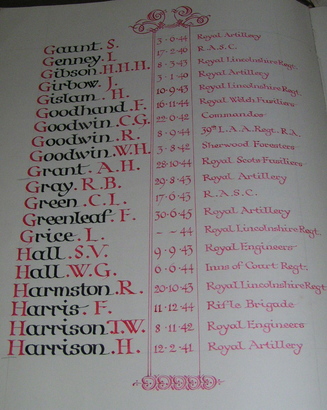 Gaunt. S. 3-6-44 Royal Artillery
Genney. I. 17-2-40 R.A.S.C.
Gibson. H.H.H. 8-3-43 Royal Lincolnshire Regt.
Girbow. J. 3-1-40 Royal Artillery
Gislam. H. 10-9-43 Royal Lincolnshire Regt.
Goodhand. F. 16-11-44 Royal Welch Fusiliers
Goodwin. C.G. 22-6-42 Commandos
Goodwin. R. 8-9-44 39th L.A.A. Regt. R.A.
Goodwin. W.H. 3-8-42 Sherwood Foresters
Grant. A.H. 28-10-44 Royal Scots Fusiliers
Gray. R.B. 29-8-43 Royal Artillery
Green. C.L. 17-6-43 R.A.S.C.
Greenleaf. F. 30-6-45 Royal Artillery
Grice. L. - -44 Royal Lincolnshire Regt.
Hall. S.V. 9-9-43 Royal Engineers
Hall. W.G. 6-6-44 Inns of Court Regt.
Harmston. R. 20-10-43 Royal Lincolnshire Regt
Harris. F. 11-12-44 Rifle Brigade
Harrison. T.W. 8-11-42 Royal Engineers
Harrison. H. 12-2-41 Royal Artillery